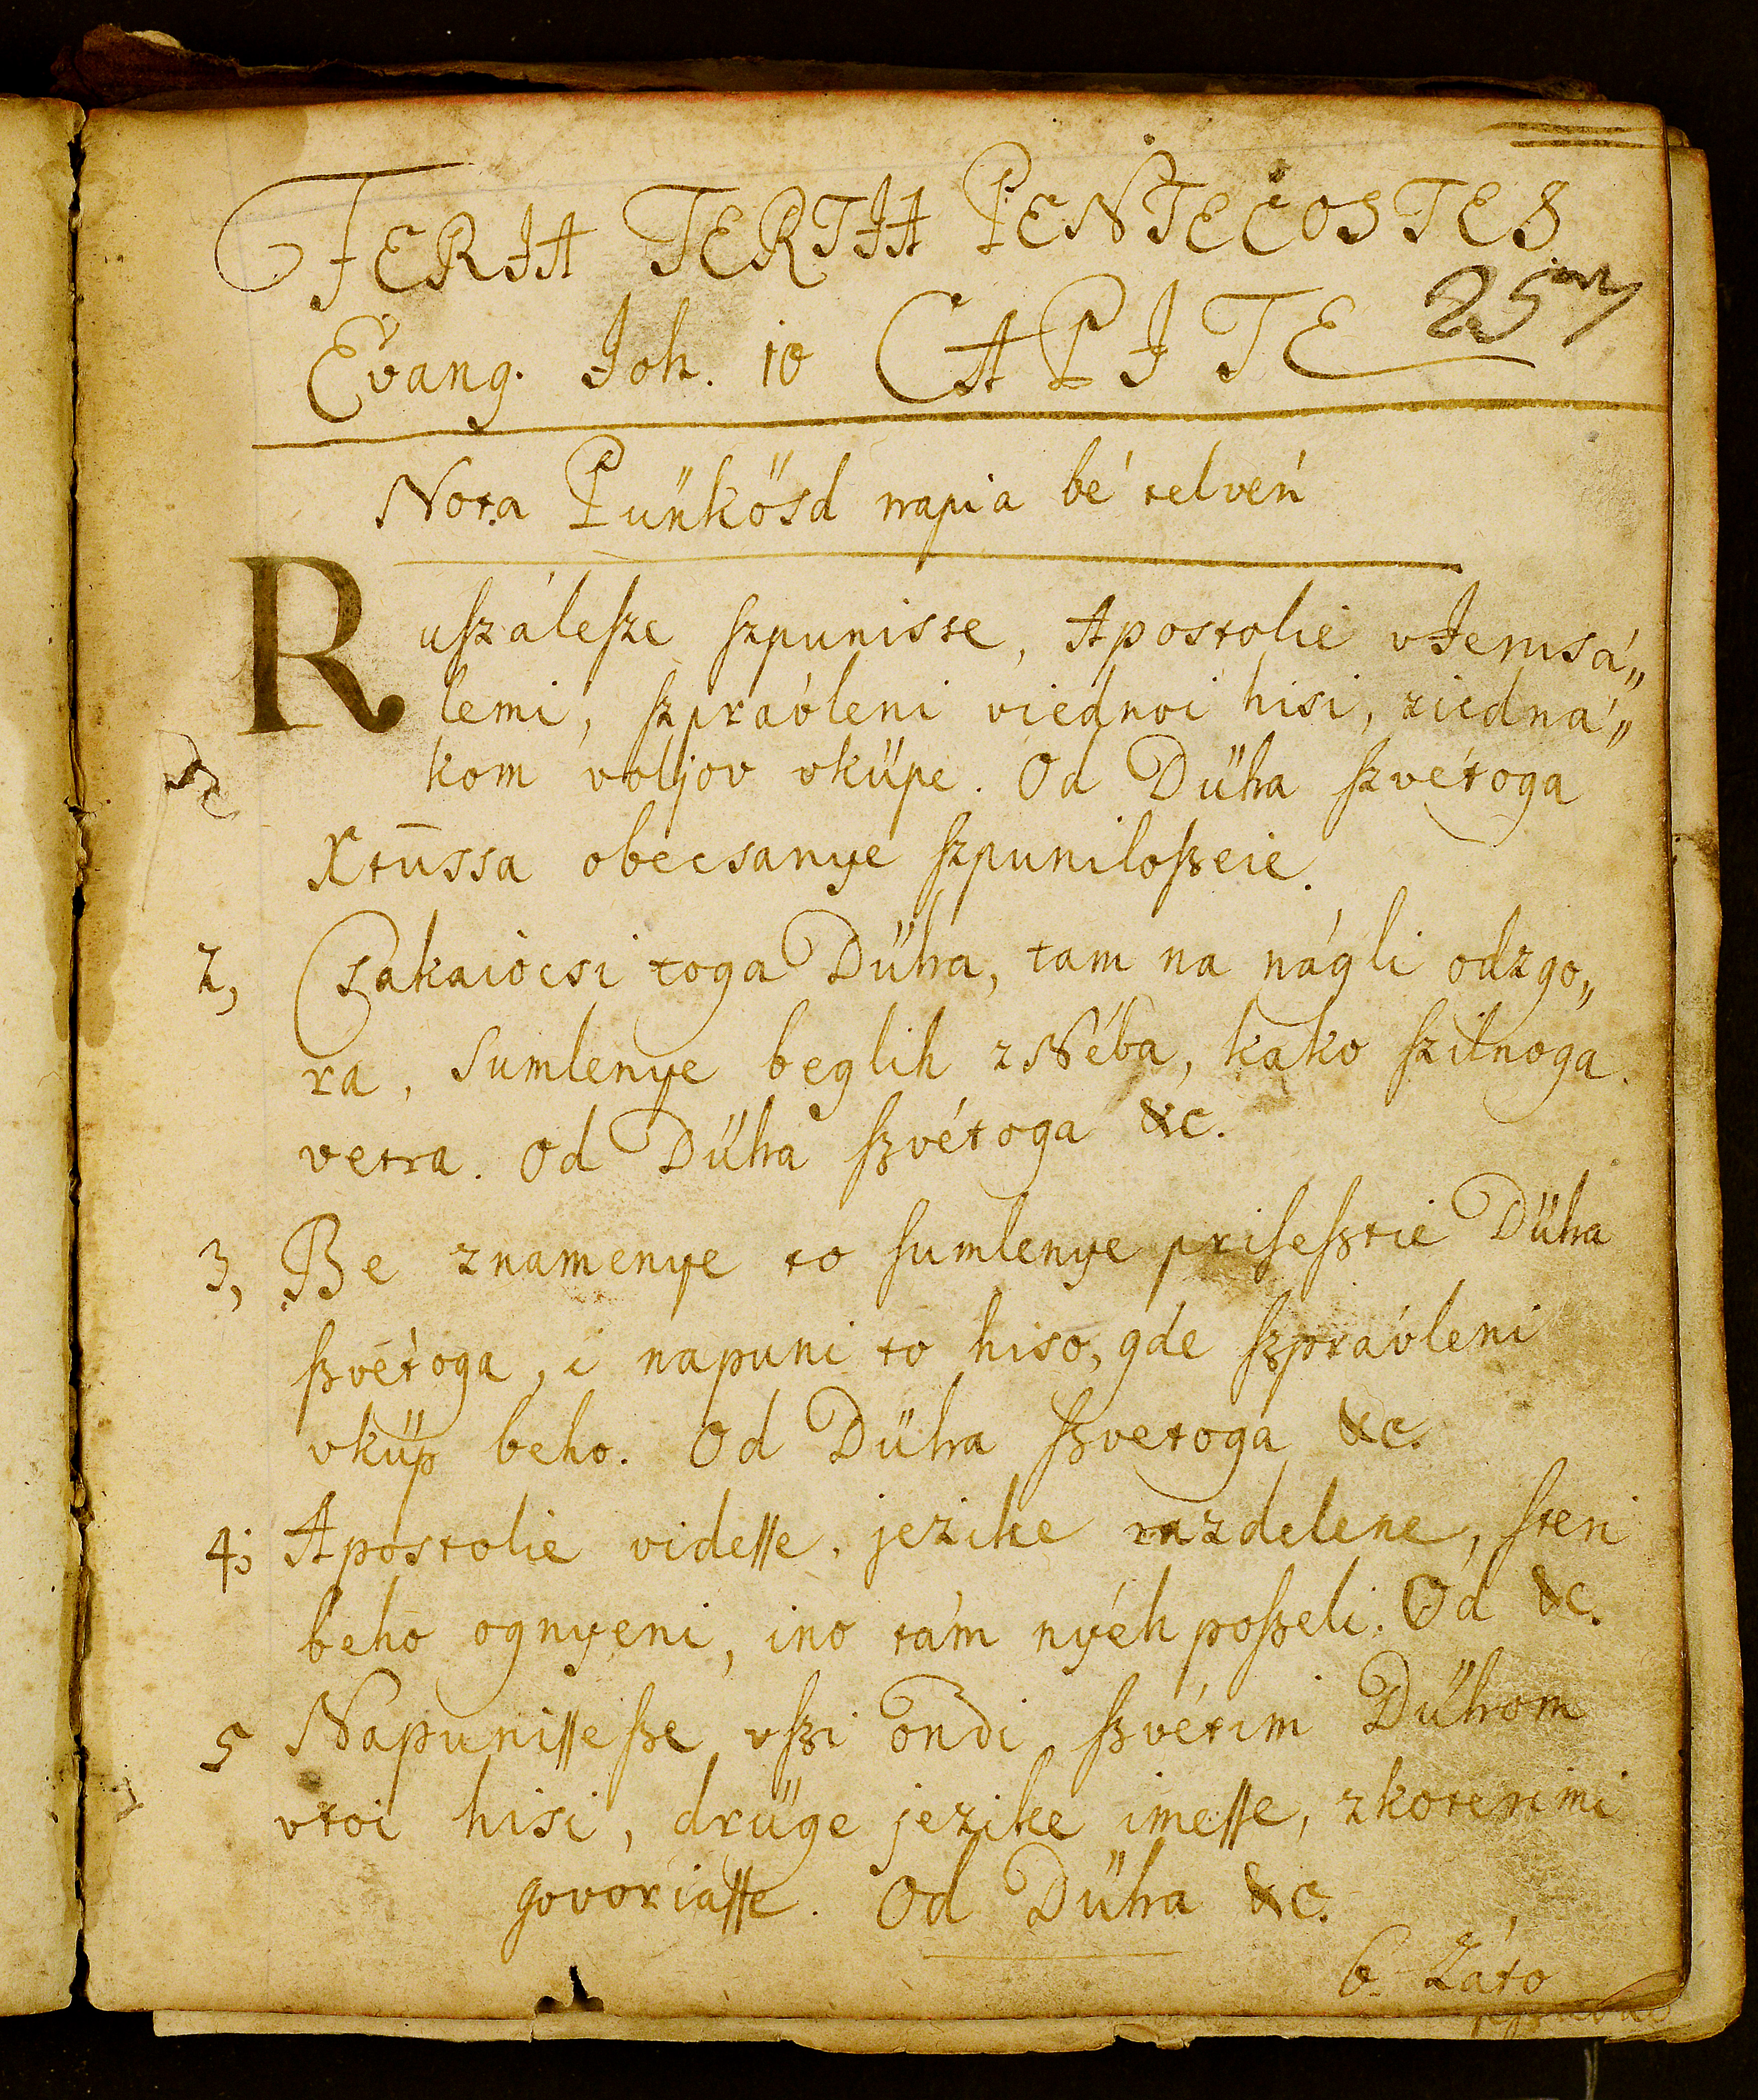 FERIA TERTIA PENTECOSTES
Evang. Joh. 10 CAPITE 25
Nota Pünkösd napia bé telvén
Ruſzáleſze ſzpuniste, Apostolie vJerusá„
lemi, ſzpravleni viednoi hisi, ziedna„
kom voljov vküpe. Od Düha ſzvétoga
Xtūssa obecsanye ſzpuniloſzeie.
2, Csakaiocsi toga Düha, tam na nágli odzgo„
ra, sumlenye beglih z Néba, kako ſzilnoga
vetra. Od Düha ſzvétoga &c.
3, Be znamenye to ſumlenye priſeſztie Düha
ſzvétoga, i napuni to hiso, gde ſzprávleni
vküp beho. Od Düha ſzvetoga &c.
4; Apostolie videſſe, jezike razdelene, ſteri
beho ognyeni, ino tám nyéh poſzeli. Od &c.
5 Napuniſſeſze vſzi ondi ſzvétim Dühom
vtoi hisi, drüge jezike imeſſe, zkoterimi
govoriaſſe. Od Düha &c.
6. Záto